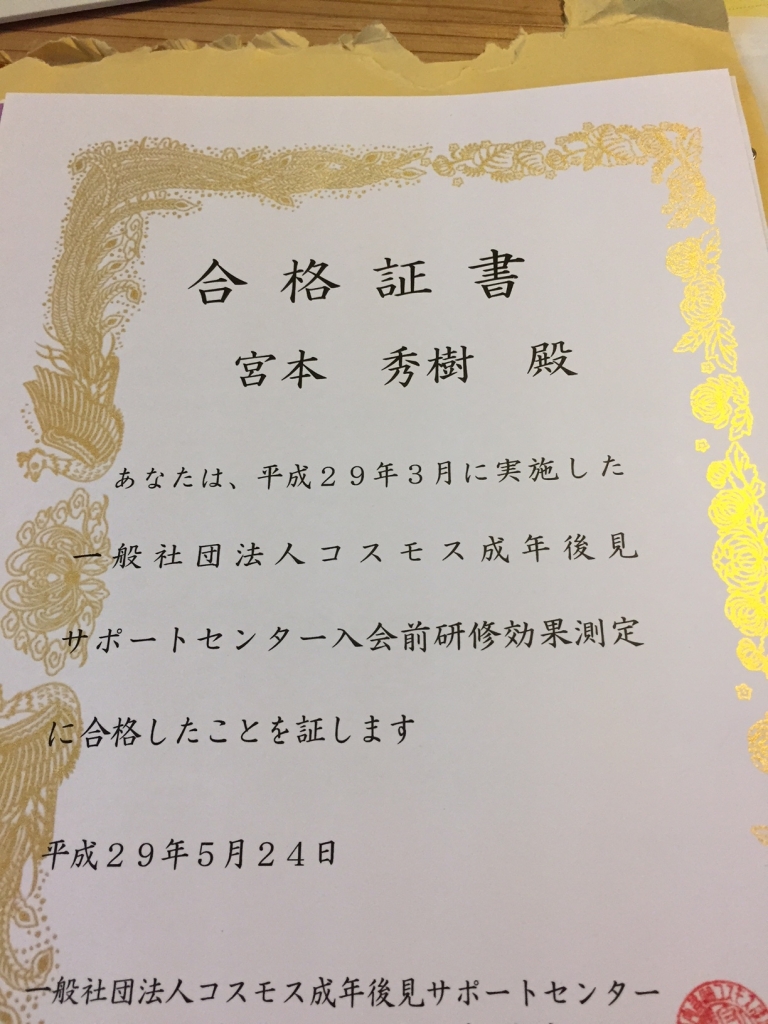 合格証書
宮本 秀樹 殿
あなたは、平成29年3月に実施した
一般社団法人コスモス成年後見
サポートセンター入会前研修効果測定
に合格したことを証します
平成29年5月24日
一般社団法人コスモス成年後見サポートセンター